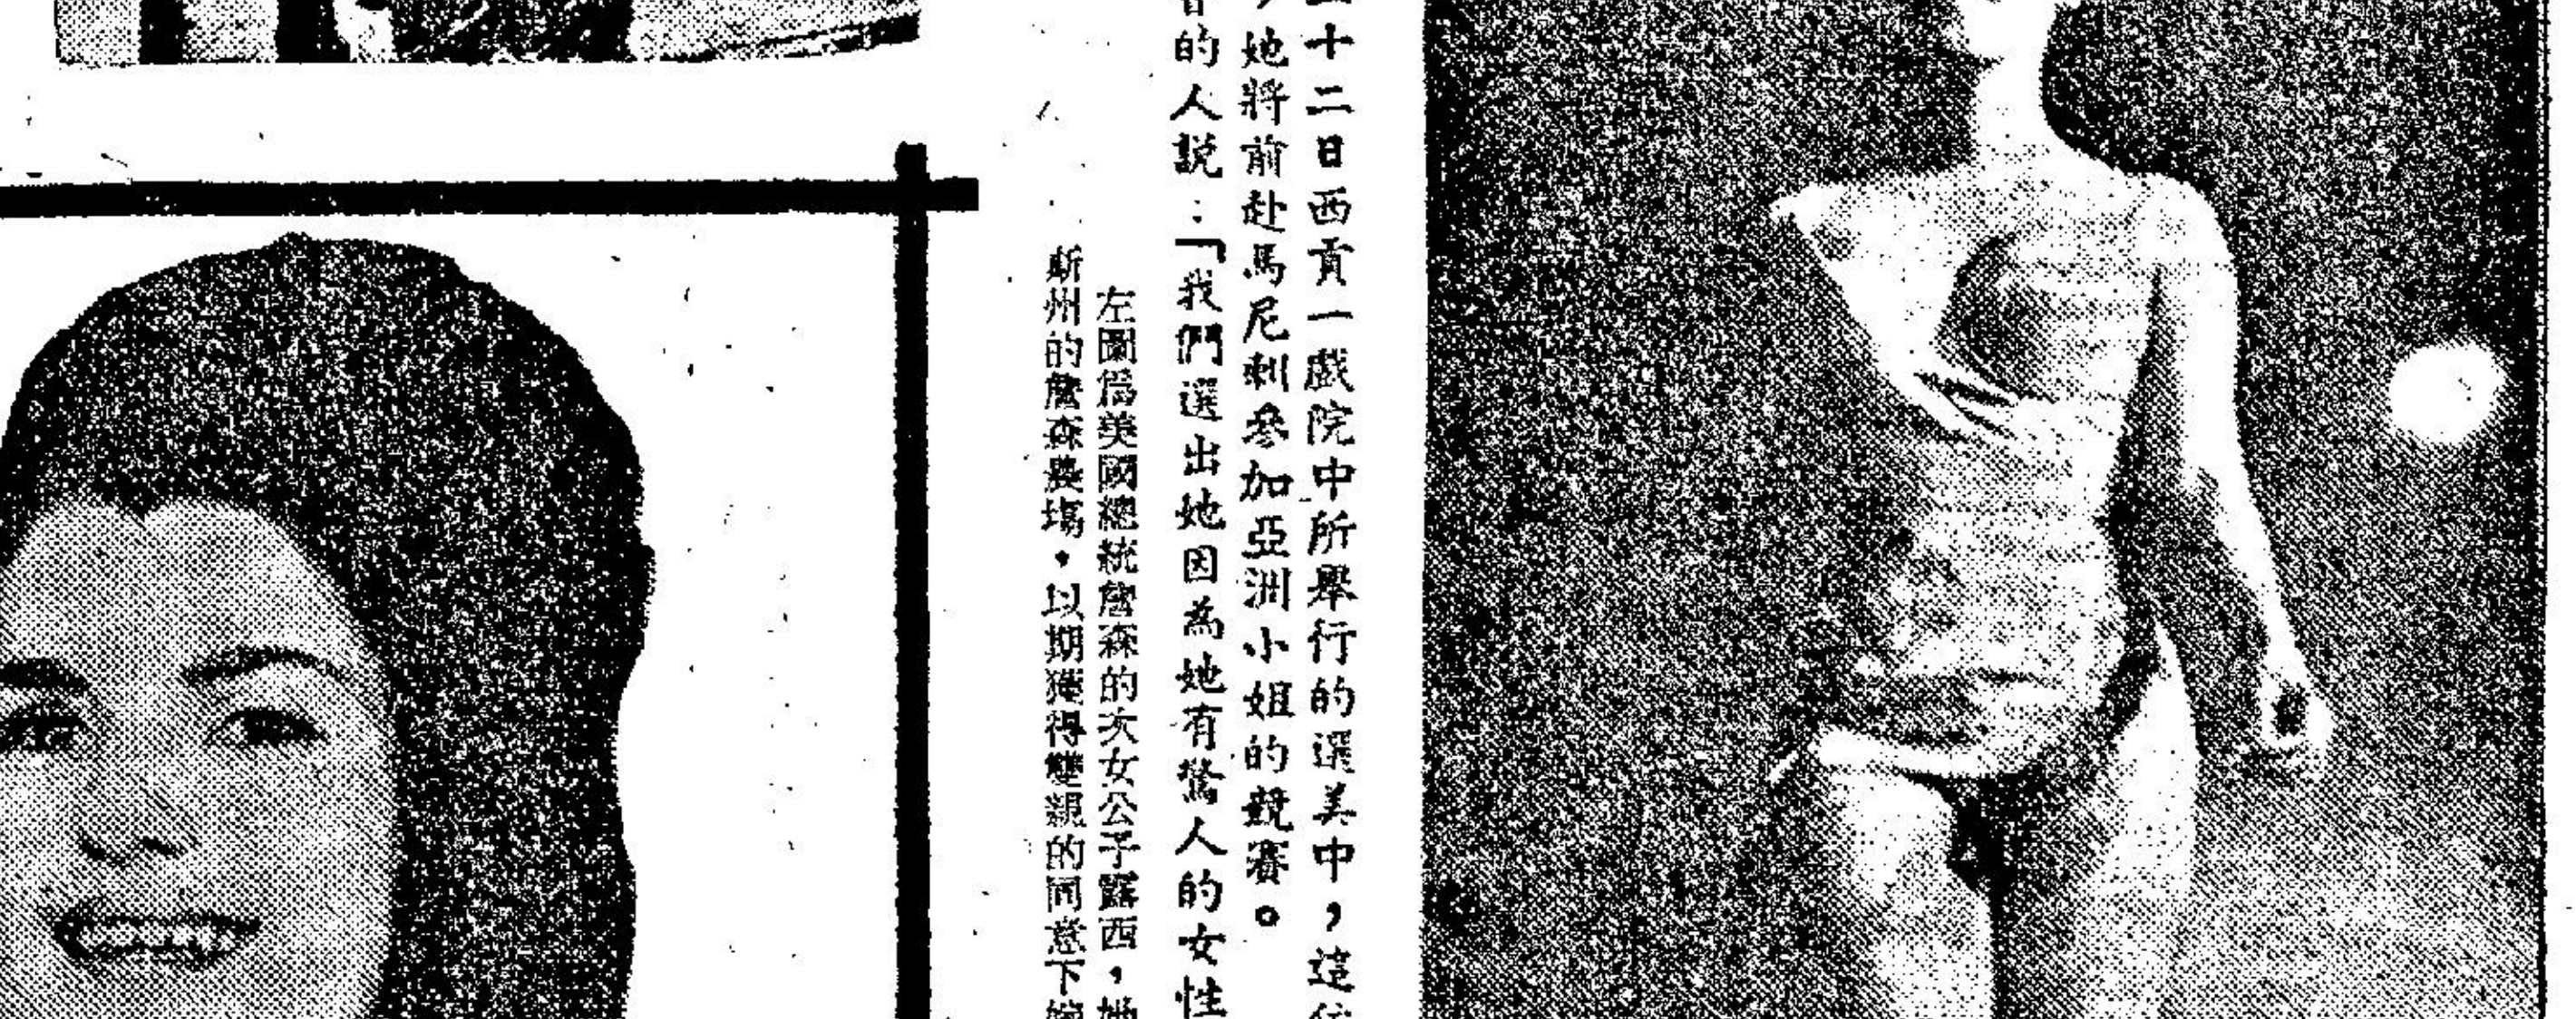 十二日西貢一戲院中所舉行的選美中，這
，她將前赴馬尼剌參加亞洲小姐的競賽。
的人說：「我們選出她因為她有驚人的女性
左圖爲美國總統詹森的次女公子露西，她
斯州的詹森農塲，以期獲得雙親的同意下